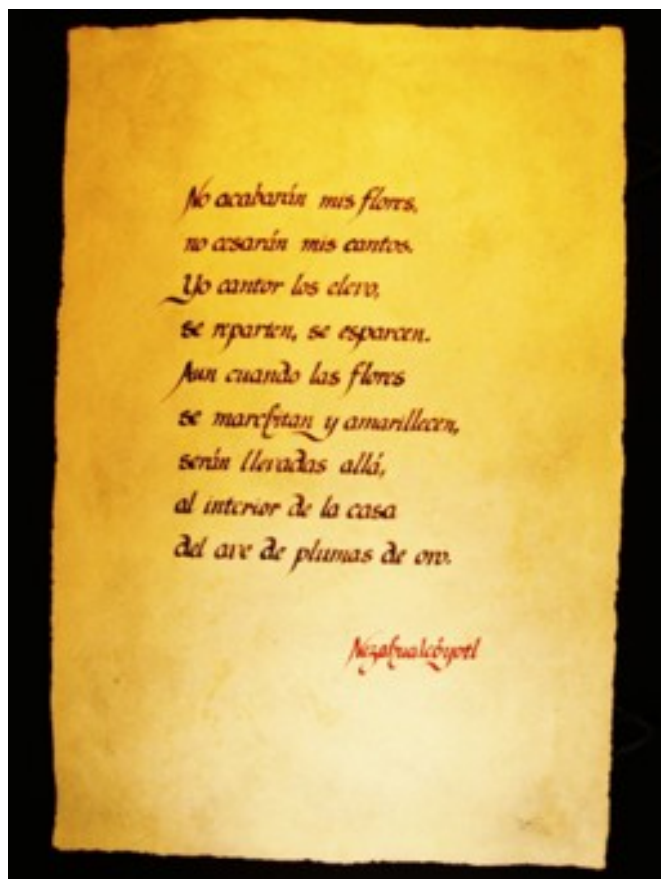 No acabarán mis flores,
no cesarán mis cantos.
Yo cantor los elevo,
se reparten, se esparcen.
Aun cuando las flores
se marchitan y amarillecen,
serán llevadas allá,
al interior de la casa
del ave de plumas de oro.
Nezahualcóyotl